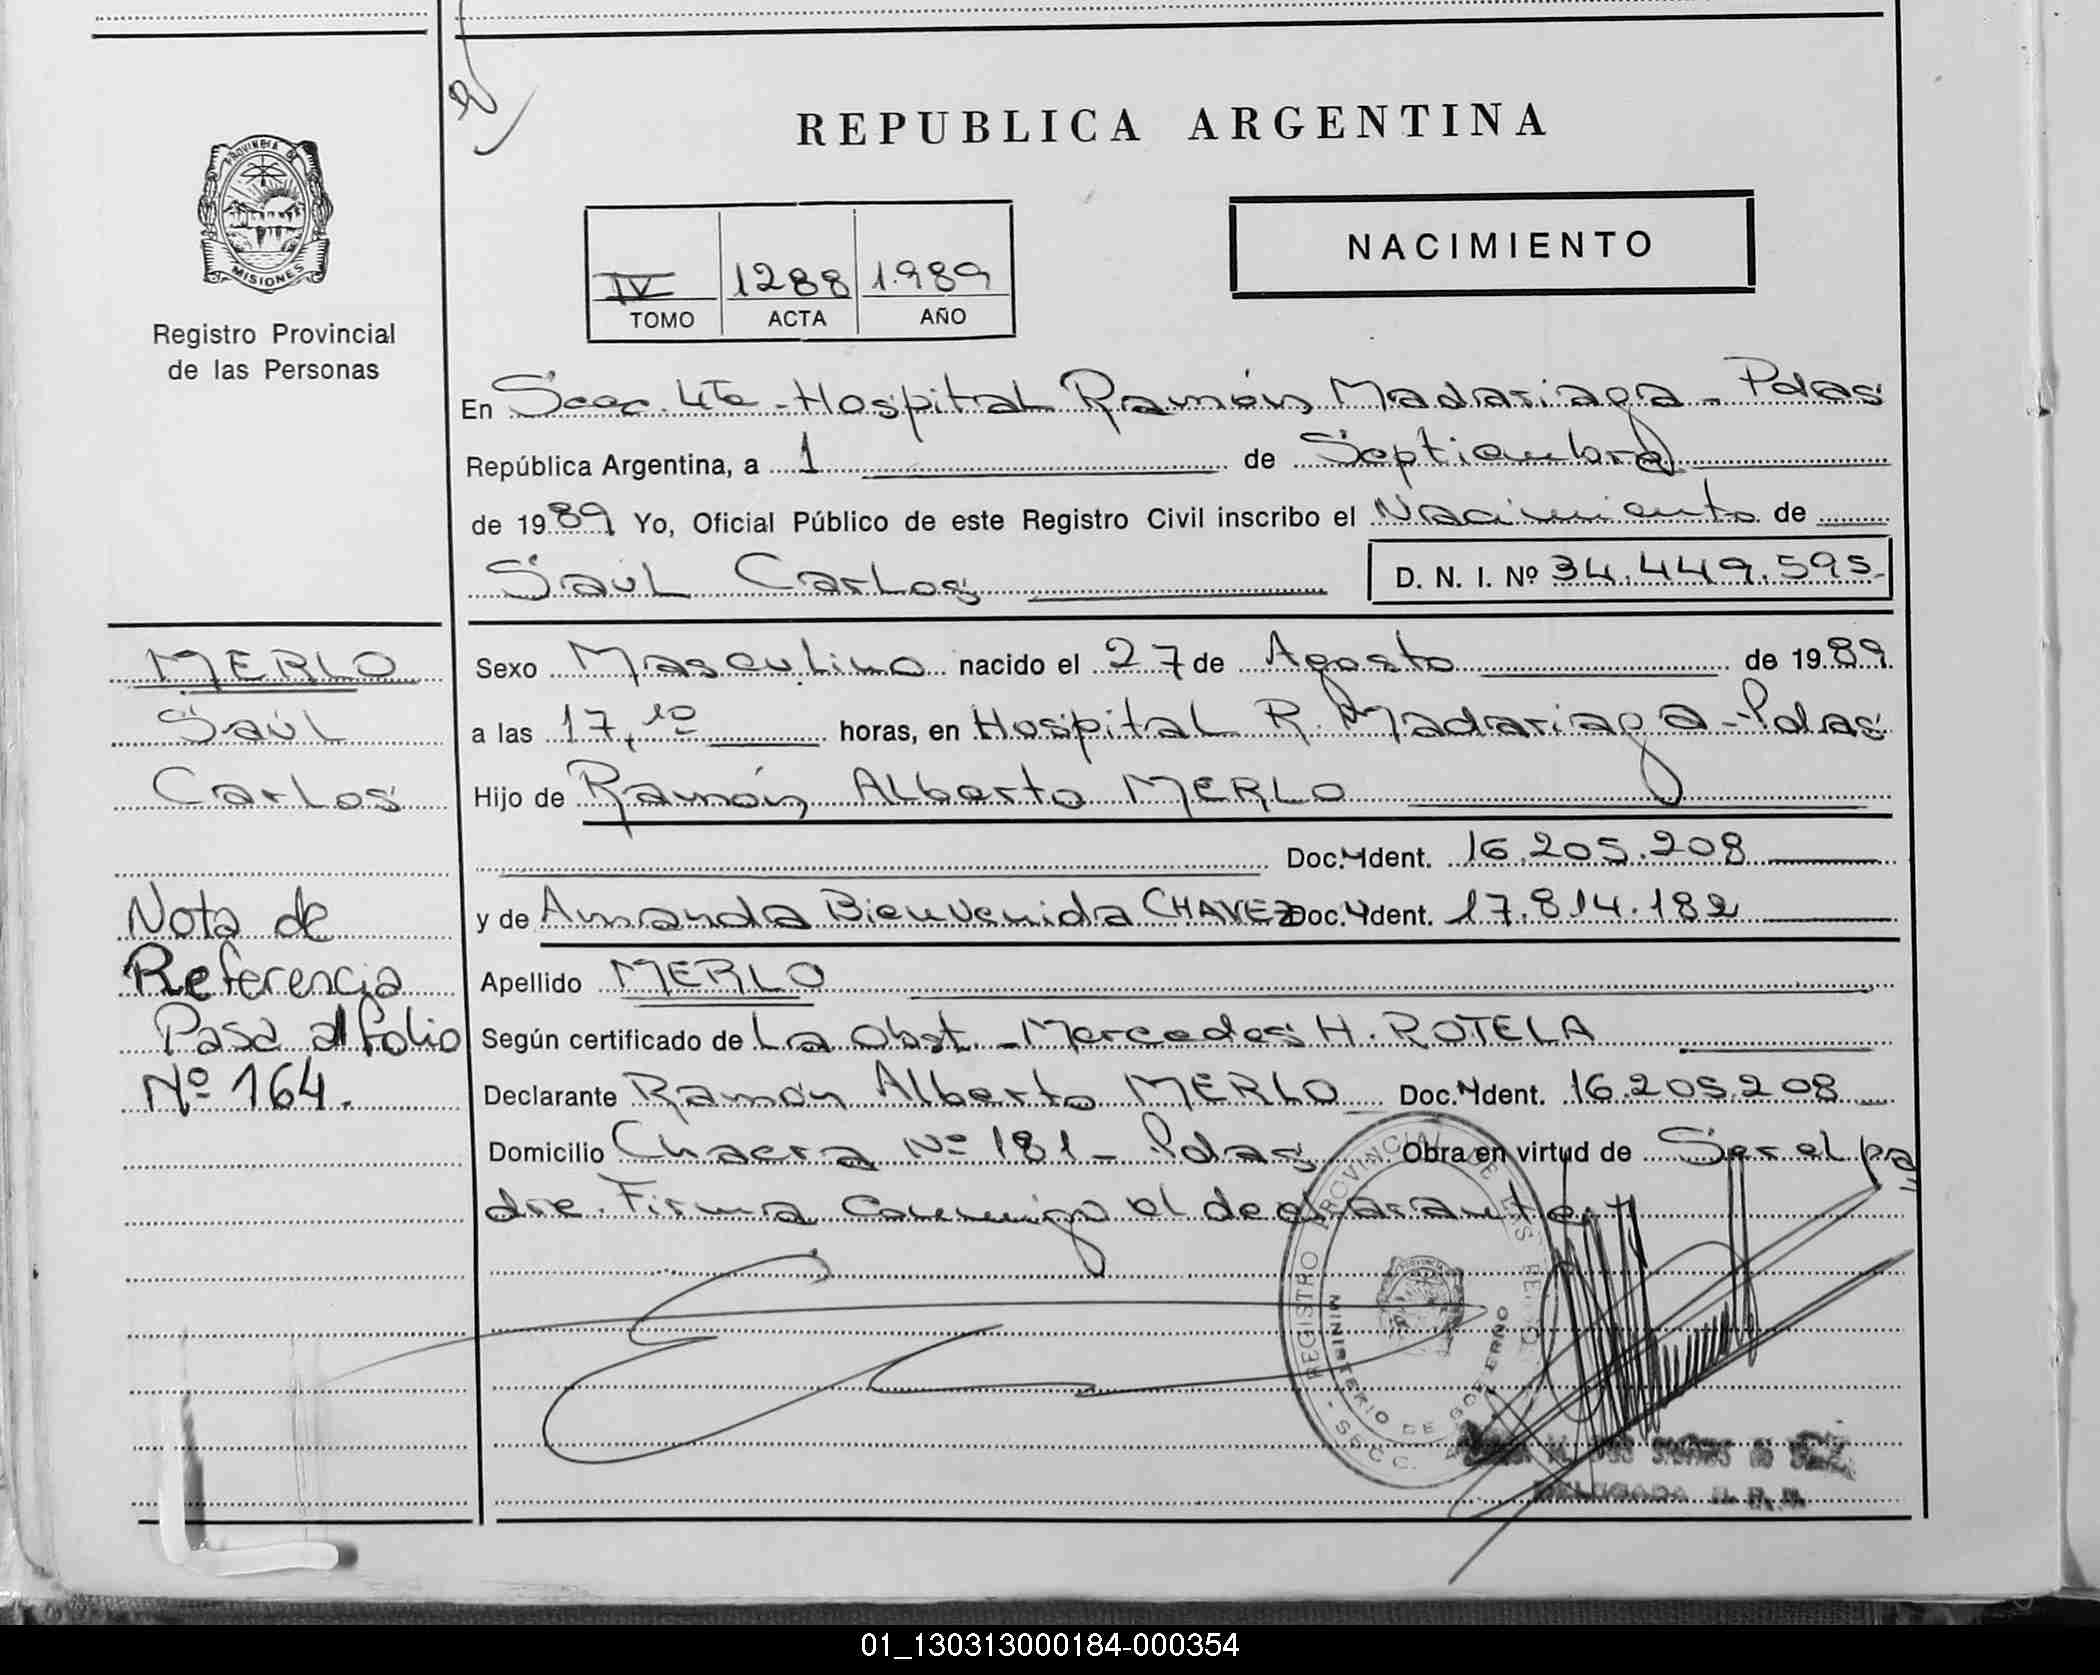 REPUBLICA ARGENTINA
PROVINCIA DE
MISIONES
Registro Provincial
de las Personas
IV 1288 1.989
TOMO ACTA AÑO
NACIMIENTO
En Secc. 4ta - Hospital Ramón Madariaga - Pdas
República Argentina, a 1 de Septiembre
de 1989 Yo, Oficial Público de este Registro Civil inscribo el Nacimiento de
Saúl Carlos D. N. I. Nº 34.449.595
MERLO
Saúl
Carlos
Nota de
Referencia
Pasa al folio
Nº 164.
Sexo Masculino nacido el 27 de Agosto de 1989
a las 17,10 horas, en Hospital R. Madariaga - Pdas
Hijo de Ramón Alberto MERLO
Doc. Ident. 16.205.208
y de Amanda Bienvenida CHAVEZ Doc. Ident. 17.814.182
Apellido MERLO
Según certificado de La Obst. - Mercedes H. ROTELA
Declarante Ramón Alberto MERLO Doc. Ident. 16.205.208
Domicilio Chacra Nº 181 - Pdas Obra en virtud de Ser el pa
dre. Firma conmigo el declarante,
REGISTRO PROVINCIAL DE LAS
MINISTERIO DE GOBIERNO
SECC.
01_130313000184-000354